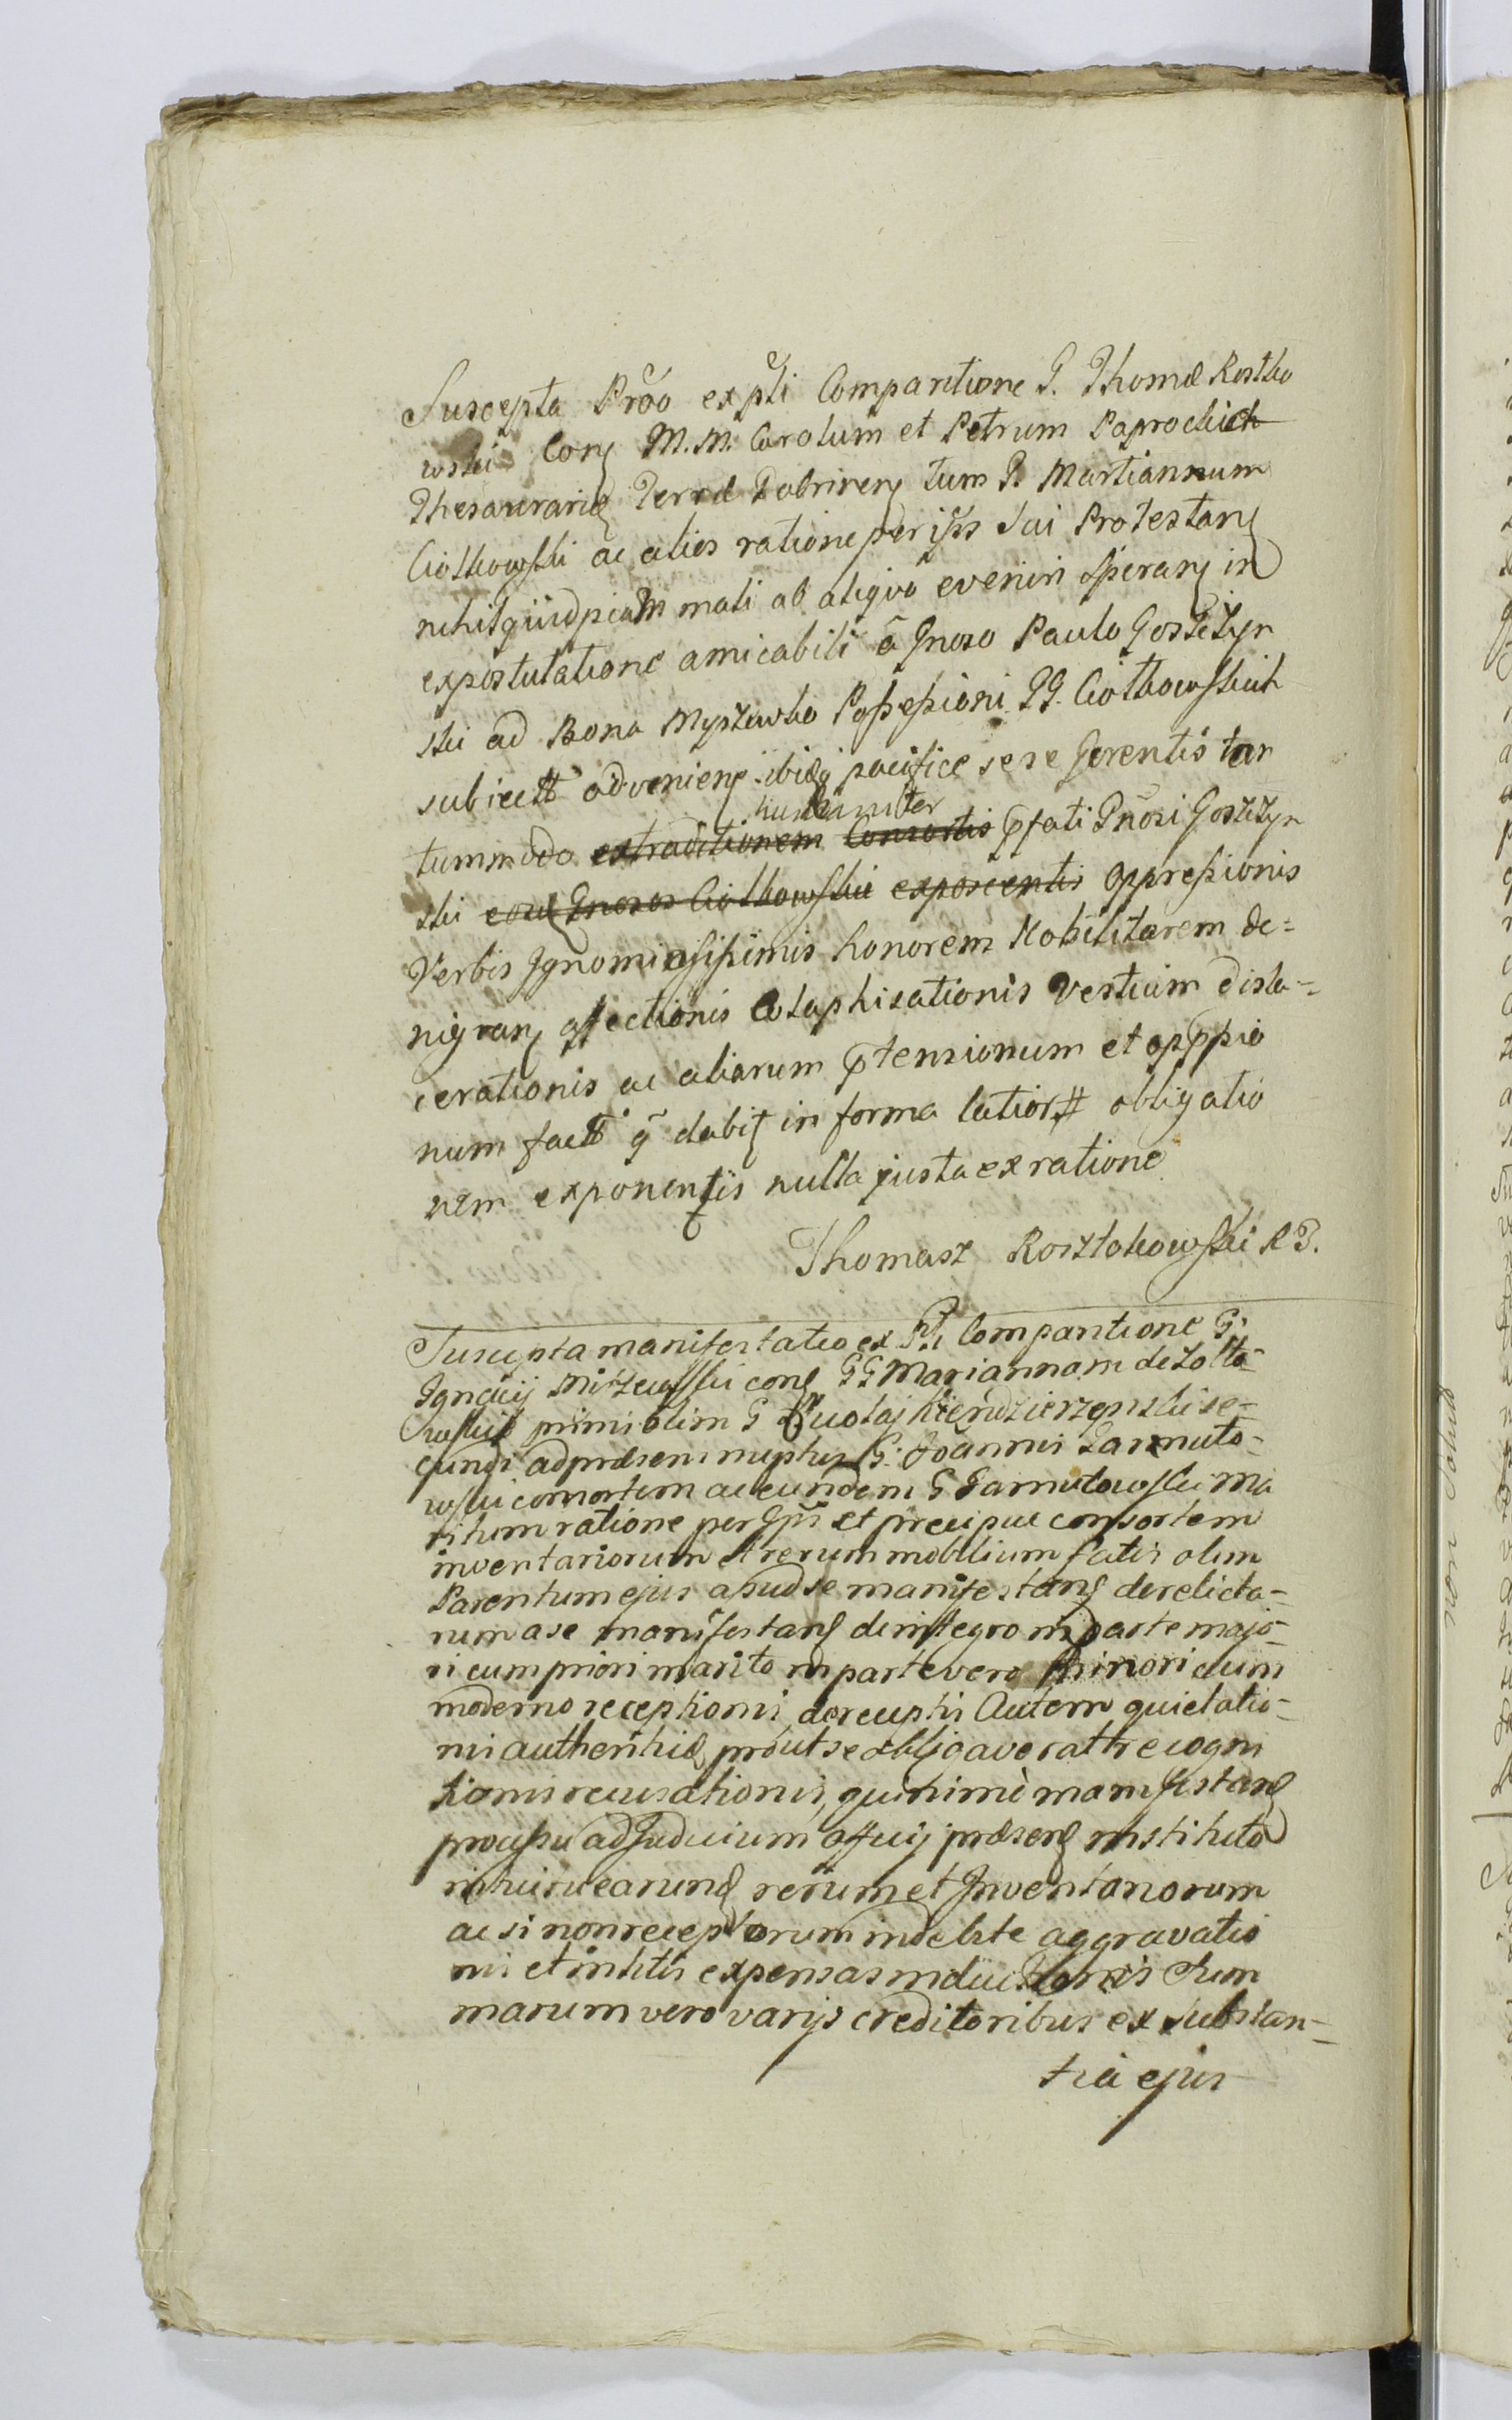 Suscepta Prõõ ex pt̃i Comparitione G. Thomæ Rostko
wski Conŝ M. M. Carolum et Petrum Paprockich
Thesaurariæ Terræ Dobrinenŝ tum G. Martiannum
Ciołkowski ac alios ratione per ip̃s sui Protestanŝ
nihil quidpiam mali ab aliquo eveniri Speranŝ in
expostulatione amicabili â Gnoso Paulo Gostczyn
ski ad Bona Myszewko Possessioni GG. Ciołkowskich
subiectt adveniens ibiq pacifice sese Gerentis tan
humaniter
tummodo extraditionem Consortis pfati Gnosi Goszczyn
ski eosq Gnosos Ciołkowskie exposcentis oppressionis
Verbis Ignominiosissimis honorem Nobilitarem de=
nigranŝ affectionis Colaphisationis Vestium disla=
cerationis ac aliarum ptensionum et opprssio
num factt q dabiŧ in forma latiori obligatio
nem exponentis nulla justa ex ratione
Thomasz Rosztokowski R G.
Suscepta manifestatio ex Pt̃i Comparitione G:
Ignacij Milzewski conŝ GG Mariannam de Zolto=
wskie primi olim G Kiendzierzepski se=
cundi ad præsens nuptus G: Joannis Jarnuto=
wski consortem ac eundem G Jarnutowski ma
ritum ratione per Ip̃s et præcipue consortem
inventariorum et rerum mobilium fatis olim
Parentum ejus apud se manifestanŝ derelicta=
rum a se manifestanŝ de integro in parte majo=
ri cum priori marito in parte vero minori cum
moderno receptionis, de receptis Autem quietatio=
nis authenticæ, prout se obligaverat recogni
tionis recusationis, quinimò manifestanŝ
processu ad Judicium Officij præsenŝ instituto
intuitu earund rerum et Inventariorum
ac si non receptorum indebite aggravatio
nis et in litis expensas inductionis Sum
marum vero varijs creditoribus ex substan=
tia ejus
non solum